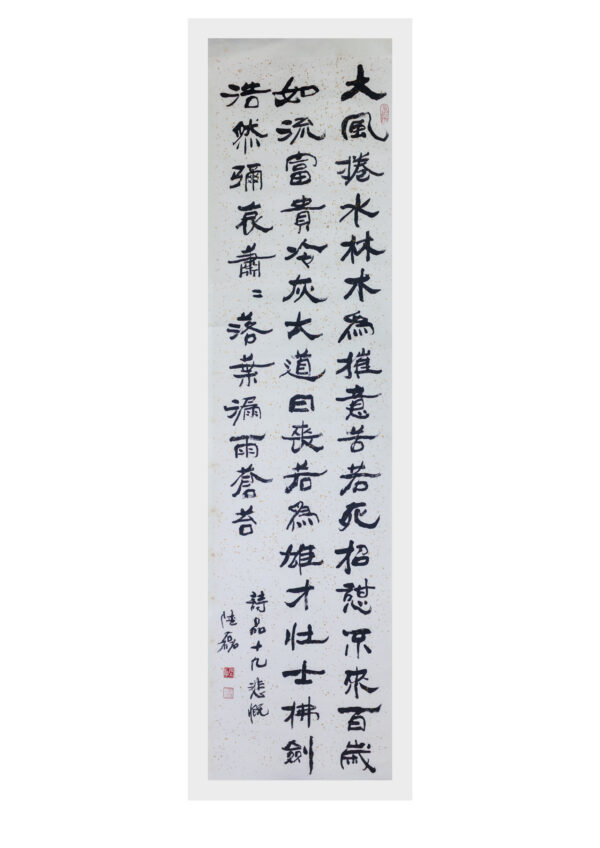 大風捲水林木為摧意苦若死招憩不來百歲
如流富貴冷灰大道日喪若為雄才壯士拂劍
浩然彌哀蕭〻落葉漏雨蒼苔
詩品十九悲慨
陸磊